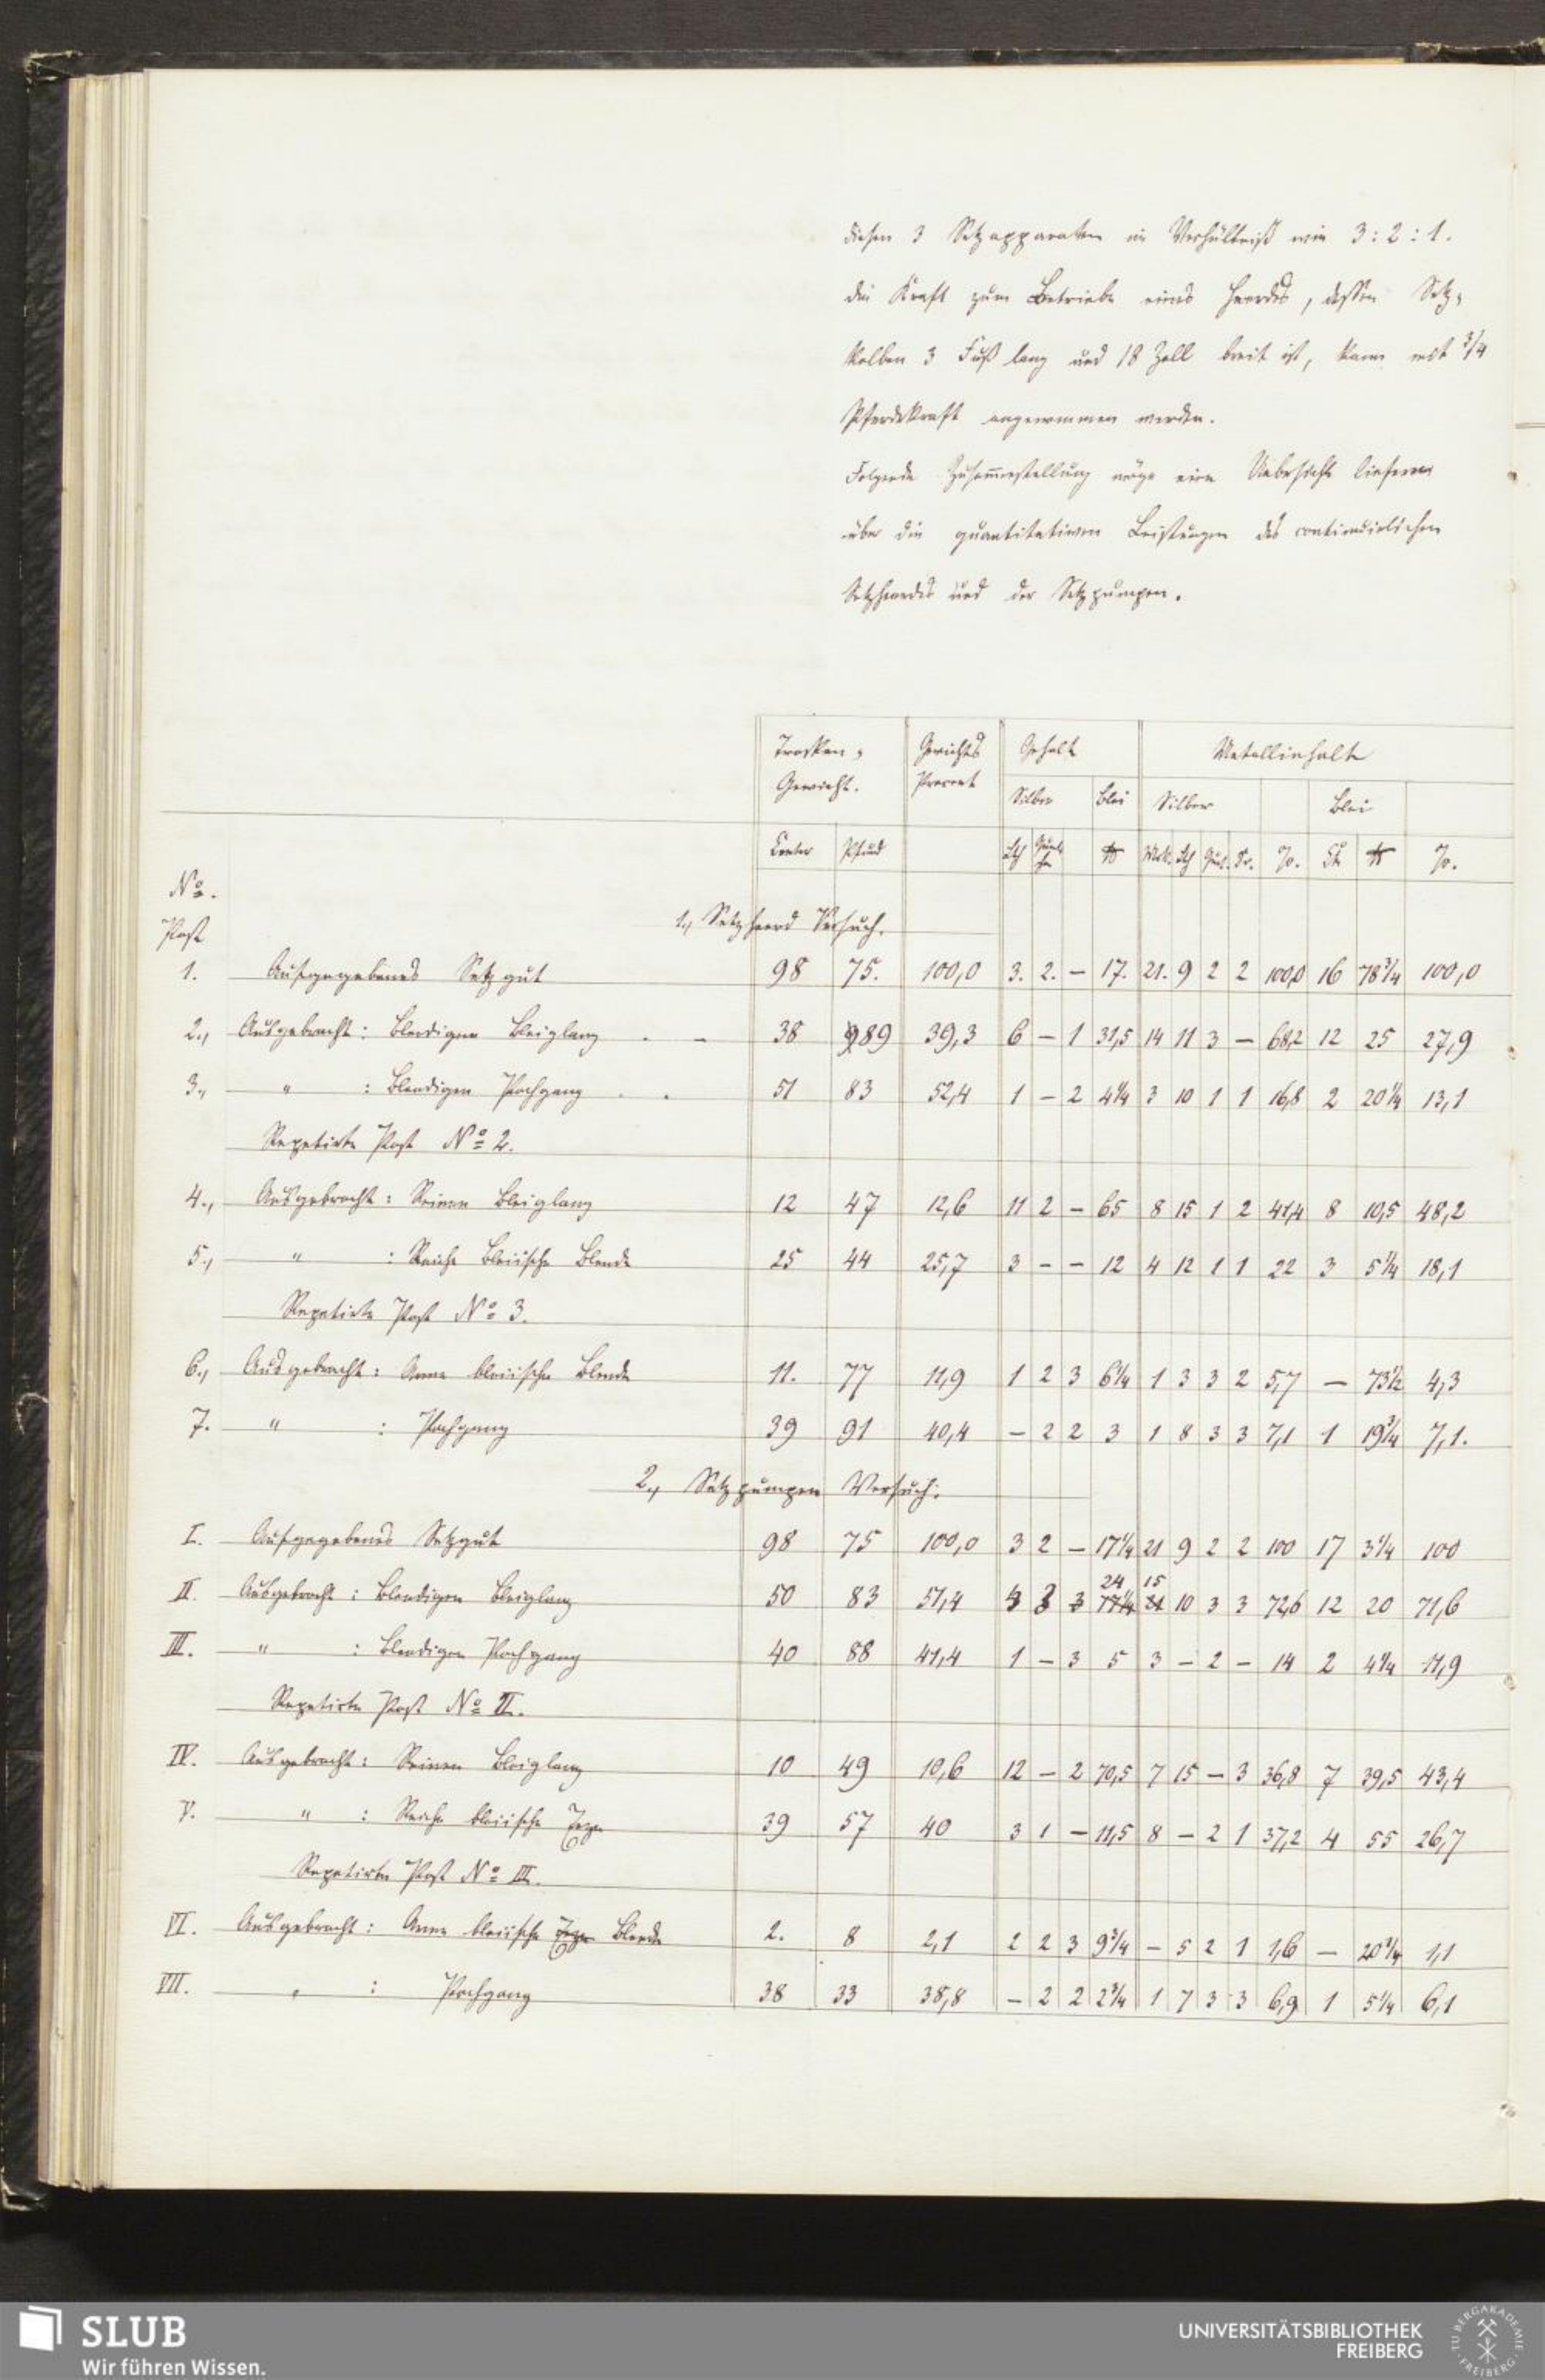 diesen 3 Setzapparaten im Verhältniß wie 3:2:1.
die Kraft zum Betriebe eines Heerdes, dessen Setz-
kolben 3 Fuß lang und 18 Zoll breit ist, kann mit 3/4
Pferdekraft angenommen werden.
Folgende Zusam̄enstellung möge eine Uebersicht liefern
über die quantitativen Leistungen des continuirlichen
Setzheerdes und der Setzpumpen.
Trocken- Gewichts Gehalt Metallinhalt
Gewicht. Procent Silber Blei Silber Blei
Centner Pfund Lth ℔ Mrk. Lth Qul. %. ℔ %.
No.
Post
1., Setzheerd Versuch.
1. Aufgegebenes Setzgut 98 75. 100,0 3. 2. – 17. 21. 9 2 2 100,0 16 78 3/4 100,0
2., Ausgebracht: Blendigen Bleiglanz . – 38 89 39,3 6 – 1 31,5 14 11 3 – 68,2 12 25 27,9
3., " : Blendigen Pochgang . . 51 83 52,4 1 – 2 4 1/4 3 10 1 1 16,8 2 20 1/4 13,1
Repetirte Post No 2.
4., Ausgebracht: Reinen Bleiglanz 12 47 12,6 11 2 – 65 8 15 1 2 41,4 8 10,5 48,2
5., " : Reiche Bleiische Blende 25 44 25,7 3 – – 12 4 12 1 1 22 3 5 1/4 18,1
Repetirte Post No 3.
6., Ausgebracht: Arme bleiische Blende 11. 77 11,9 1 2 3 6 1/4 1 3 3 2 5,7 – 73 1/2 4,3
7. " : Pochgang 39 91 40,4 – 2 2 3 1 8 3 3 7,1 1 19 3/4 7,1.
2., Setzpumpen Versuch.
I. Aufgegebenes Setzgut 98 75 100,0 3 2 – 17 1/4 21 9 2 2 100 17 3 1/4 100
II. Ausgebracht: Blendigen Bleiglanz 50 83 51,4 3 24 15 10 3 3 72,6 12 20 71,6
III. " : Blendigen Pochgang 40 88 41,4 1 – 3 5 3 – 2 – 14 2 4 1/4 11,9
Repetirte Post No II.
IV. Ausgebracht: Reinen Bleiglanz 10 49 10,6 12 – 2 70,5 7 15 – 3 36,8 7 39,5 43,4
V. " : Reiche bleiische 39 57 40 3 1 – 11,5 8 – 2 1 37,2 4 55 26,7
Repetirte Post No III.
VI. Ausgebracht: Arme bleiische Blende 2. 8 2,1 2 2 3 9 3/4 – 5 2 1 1,6 – 20 1/4 1,1
VII. " : Pochgang 38 33 38,8 – 2 2 2 3/4 1 7 3 3 6,9 1 5 1/4 6,1
SLUB
Wir führen Wissen.
UNIVERSITÄTSBIBLIOTHEK
FREIBERG
TU BERGAKADEMIE FREIBERG